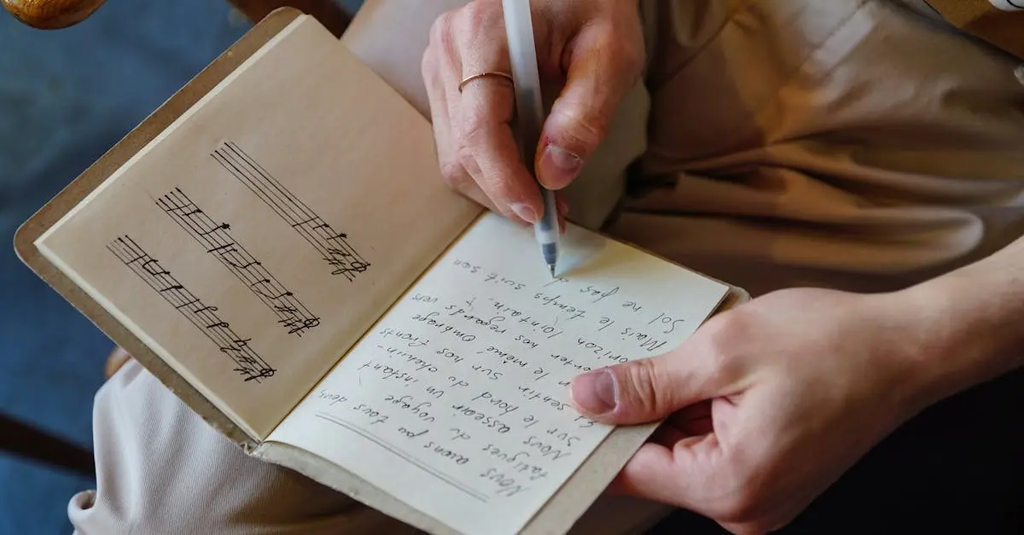 Nous aions pu tous deux
fatigués du voyage
Nous asseoir un instant
Sur le bord du chemin
sentir sur nos fronts
le même ombrage
nos regards vers
lointain.
Mais le temps suit son
Sol ne pas